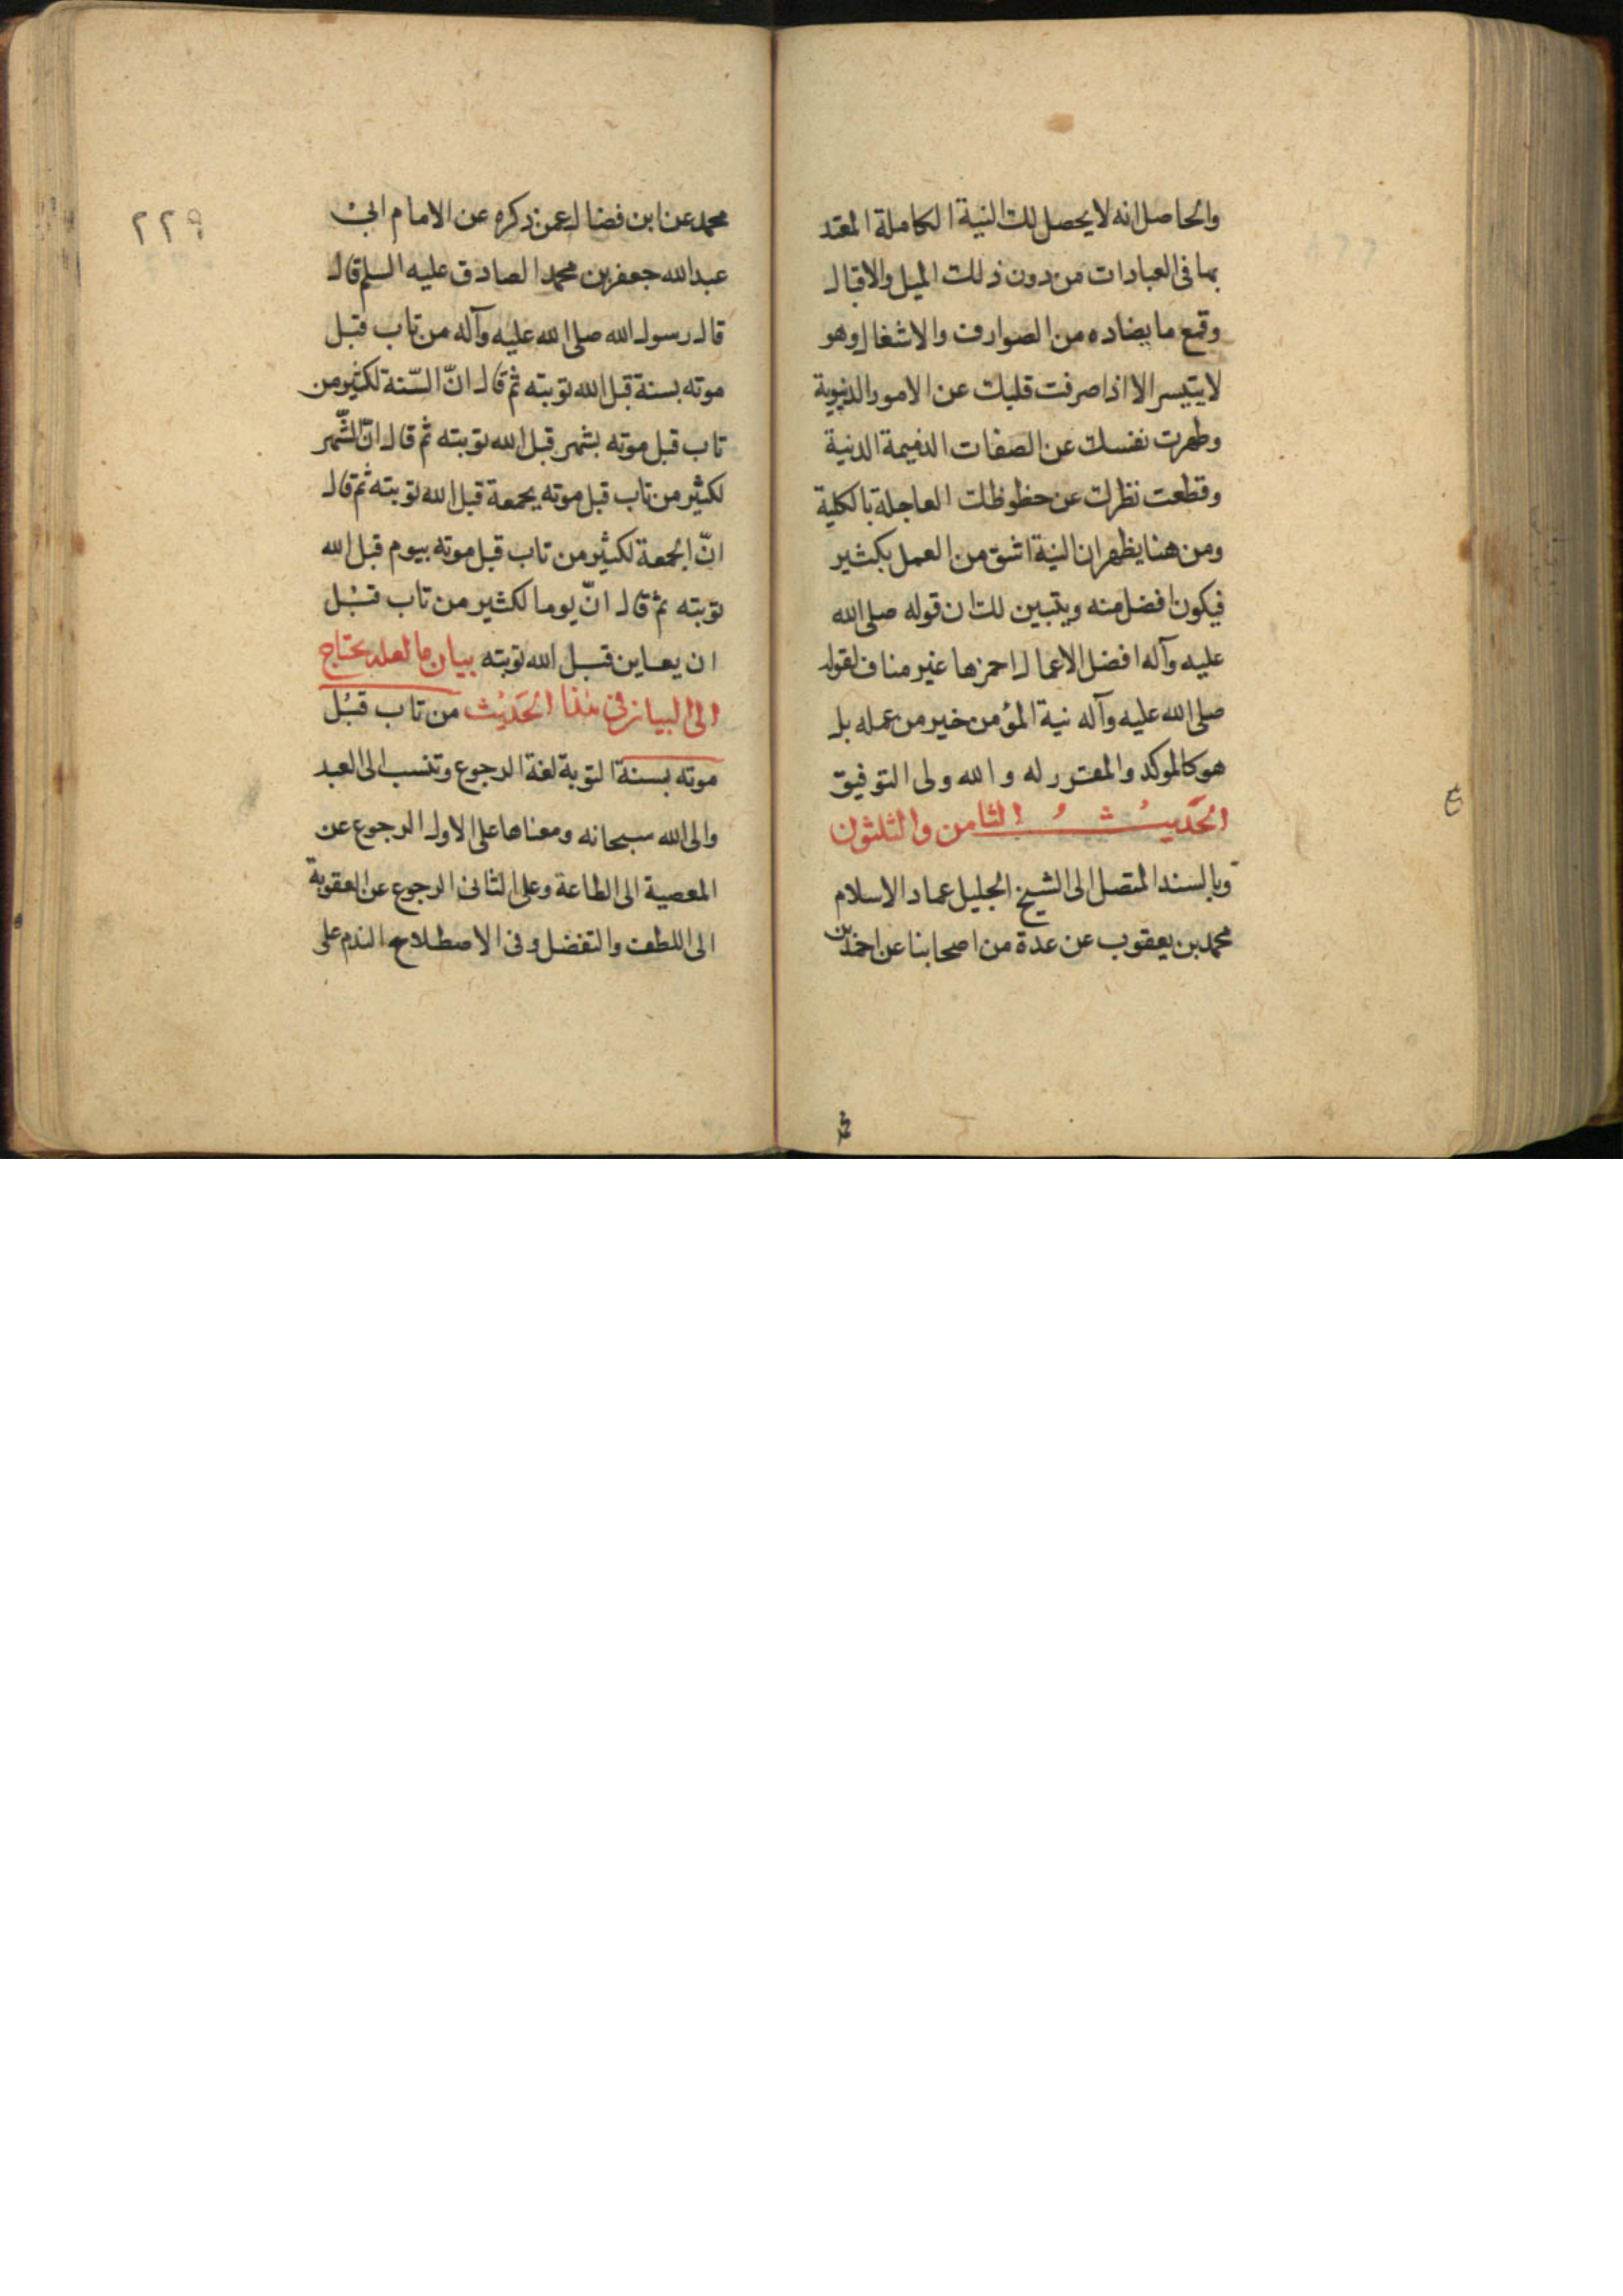 والحاصل انه لا يحصل لك النية الكاملة المعتد
بها فى العبادات من دون ذلك الميل والاقبال
وقمع ما يضاده من الصوارف والاشغال وهو
لا يتيسر الا اذا صرفت قلبك عن الامور الدنيوية
وطهرت نفسك عن الصفات الذميمة الدنية
وقطعت نظرك عن حظوظك العاجلة بالكلية
ومن هنا يظهر ان النية اشق من العمل بكثير
فيكون افضل منه ويتبين لك ان قوله صلى الله
عليه وآله افضل الاعمال احمزها غير مناف لقوله
صلى الله عليه وآله نية المؤمن خير من عمله بل
هو كالموكد والمقرر له والله ولى التوفيق
الحَديثُ الثامن والثلثون
وبالسند المتصل الى الشيخ الجليل عماد الاسلام
محمد بن يعقوب عن عدة من اصحابنا عن احمد بن
ع
٢٢٩
محمد عن ابن فضال عمن ذكره عن الامام ابى
عبد الله جعفر بن محمد الصادق عليه السلم قال
قال رسول الله صلى الله عليه وآله من تاب قبل
موته بسنة قبل الله توبته ثم قال انّ السّنة لكثير من
تاب قبل موته بشهر قبل الله توبته ثم قال انّ الشّهر
لكثير من تاب قبل موته بجمعة قبل الله توبته ثم قال
انّ الجمعة لكثير من تاب قبل موته بيوم قبل الله
توبته ثم قال انّ يوما لكثير من تاب قبل
ان يعاين قبل الله توبته بيان ما لعله يحتاج
الى البيان فى هذا الحَديث من تاب قبل
موته بسنة التوبة لغة الرجوع وتنسب الى العبد
والى الله سبحانه ومعناها على الاول الرجوع عن
المعصية الى الطاعة وعلى الثانى الرجوع عن العقوبة
الى اللطف والتفضل وفى الاصطلاح الندم على